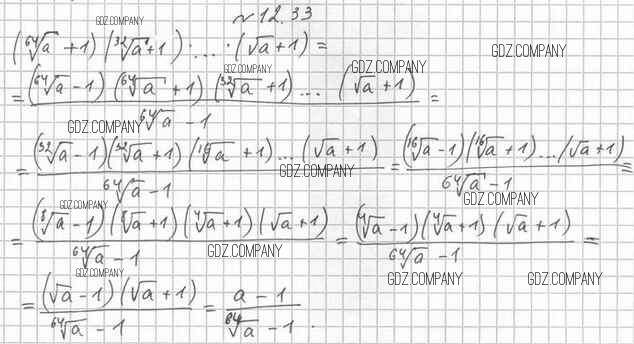 ~12.33
GDZ.COMPANY
(⁶⁴√a + 1)(³²√a + 1) · ... · (√a + 1) =
GDZ.COMPANY
GDZ.COMPANY
GDZ.COMPANY
= (⁶⁴√a − 1)(⁶⁴√a + 1)(³²√a + 1) ... (√a + 1) / ⁶⁴√a − 1 =
GDZ.COMPANY
= (³²√a − 1)(³²√a + 1)(¹⁶√a + 1) ... (√a + 1) / ⁶⁴√a − 1 = (¹⁶√a − 1)(¹⁶√a + 1) ... (√a + 1) / ⁶⁴√a − 1 =
GDZ.COMPANY
GDZ.COMPANY
GDZ.COMPANY
= (⁸√a − 1)(⁸√a + 1)(⁴√a + 1)(√a + 1) / ⁶⁴√a − 1 = (⁴√a − 1)(⁴√a + 1)(√a + 1) / ⁶⁴√a − 1 =
GDZ.COMPANY
GDZ.COMPANY
GDZ.COMPANY
GDZ.COMPANY
= (√a − 1)(√a + 1) / ⁶⁴√a − 1 = a − 1 / ⁶⁴√a − 1 .